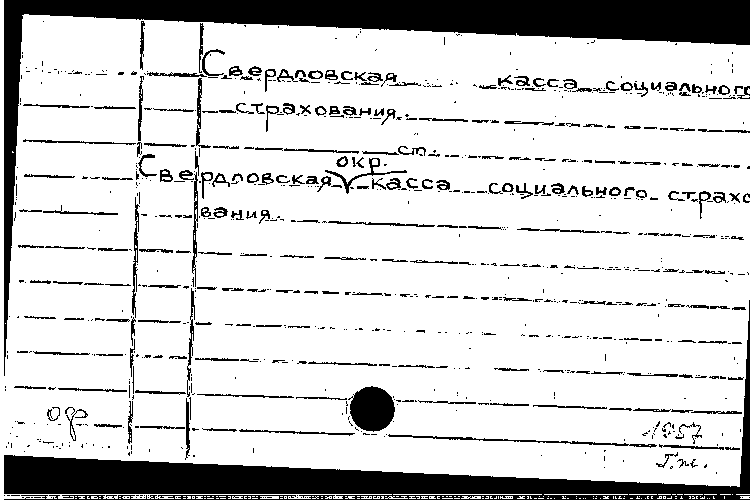 Свердловская касса социального
страхования.
ст.
окр.
Свердловская касса социального страхо
вания.
орф
1957